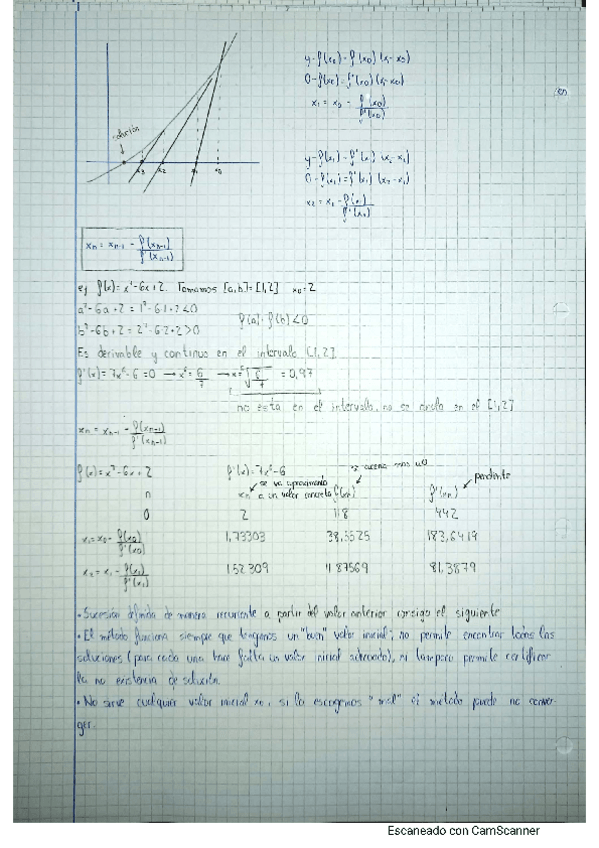 y-f(x₀)=f'(x₀)(x-x₀)
0-f(x₀)=f'(x₀)(x₁-x₀)
x₁ = x₀ - f(x₀)/f'(x₀)
solución
x₃ x₂ x₁ x₀
y-f(x₁)=f'(x₁)(x₂-x₁)
0-f(x₁)=f'(x₁)(x₂-x₁)
x₂ = x₁ - f(x₁)/f'(x₁)
xₙ = xₙ₋₁ - f(xₙ₋₁)/f'(xₙ₋₁)
ej f(x)= x⁷-6x+2. Tomamos [a,b]=[1,2] x₀=2
a⁷-6a+2 = 1⁷-6·1+2<0
b⁷-6b+2 = 2⁷-6·2+2>0 f(a)·f(b)<0
Es derivable y continua en el intervalo [1,2]
f'(x)= 7x⁶-6=0 → x⁶= 6/7 → x=⁶√6/7 = 0,97
no está en el intervalo, no se anula en el [1,2]
xₙ = xₙ₋₁ - f(xₙ₋₁)/f'(xₙ₋₁)
f(x)= x⁷-6x+2 f'(x)=7x⁶-6
se va aproximando a un valor concreto
se acerca más al 0
pendiente
n xₙ f(xₙ) f'(xₙ)
0 2 118 442
x₁=x₀- f(x₀)/f'(x₀) 1,73303 38,5525 183,6419
x₂ = x₁ - f(x₁)/f'(x₁) 1,52309 11,87569 81,3879
• Sucesión definida de manera recurrente a partir del valor anterior consigo el siguiente
• El método funciona siempre que tengamos un "buen" valor inicial; no permite encontrar todas las
soluciones (para cada una hace falta un valor inicial adecuado), ni tampoco permite certificar
la no existencia de solución.
• No sirve cualquier valor inicial x₀, si lo escogemos "mal" el método puede no conver-
ger.
Escaneado con CamScanner